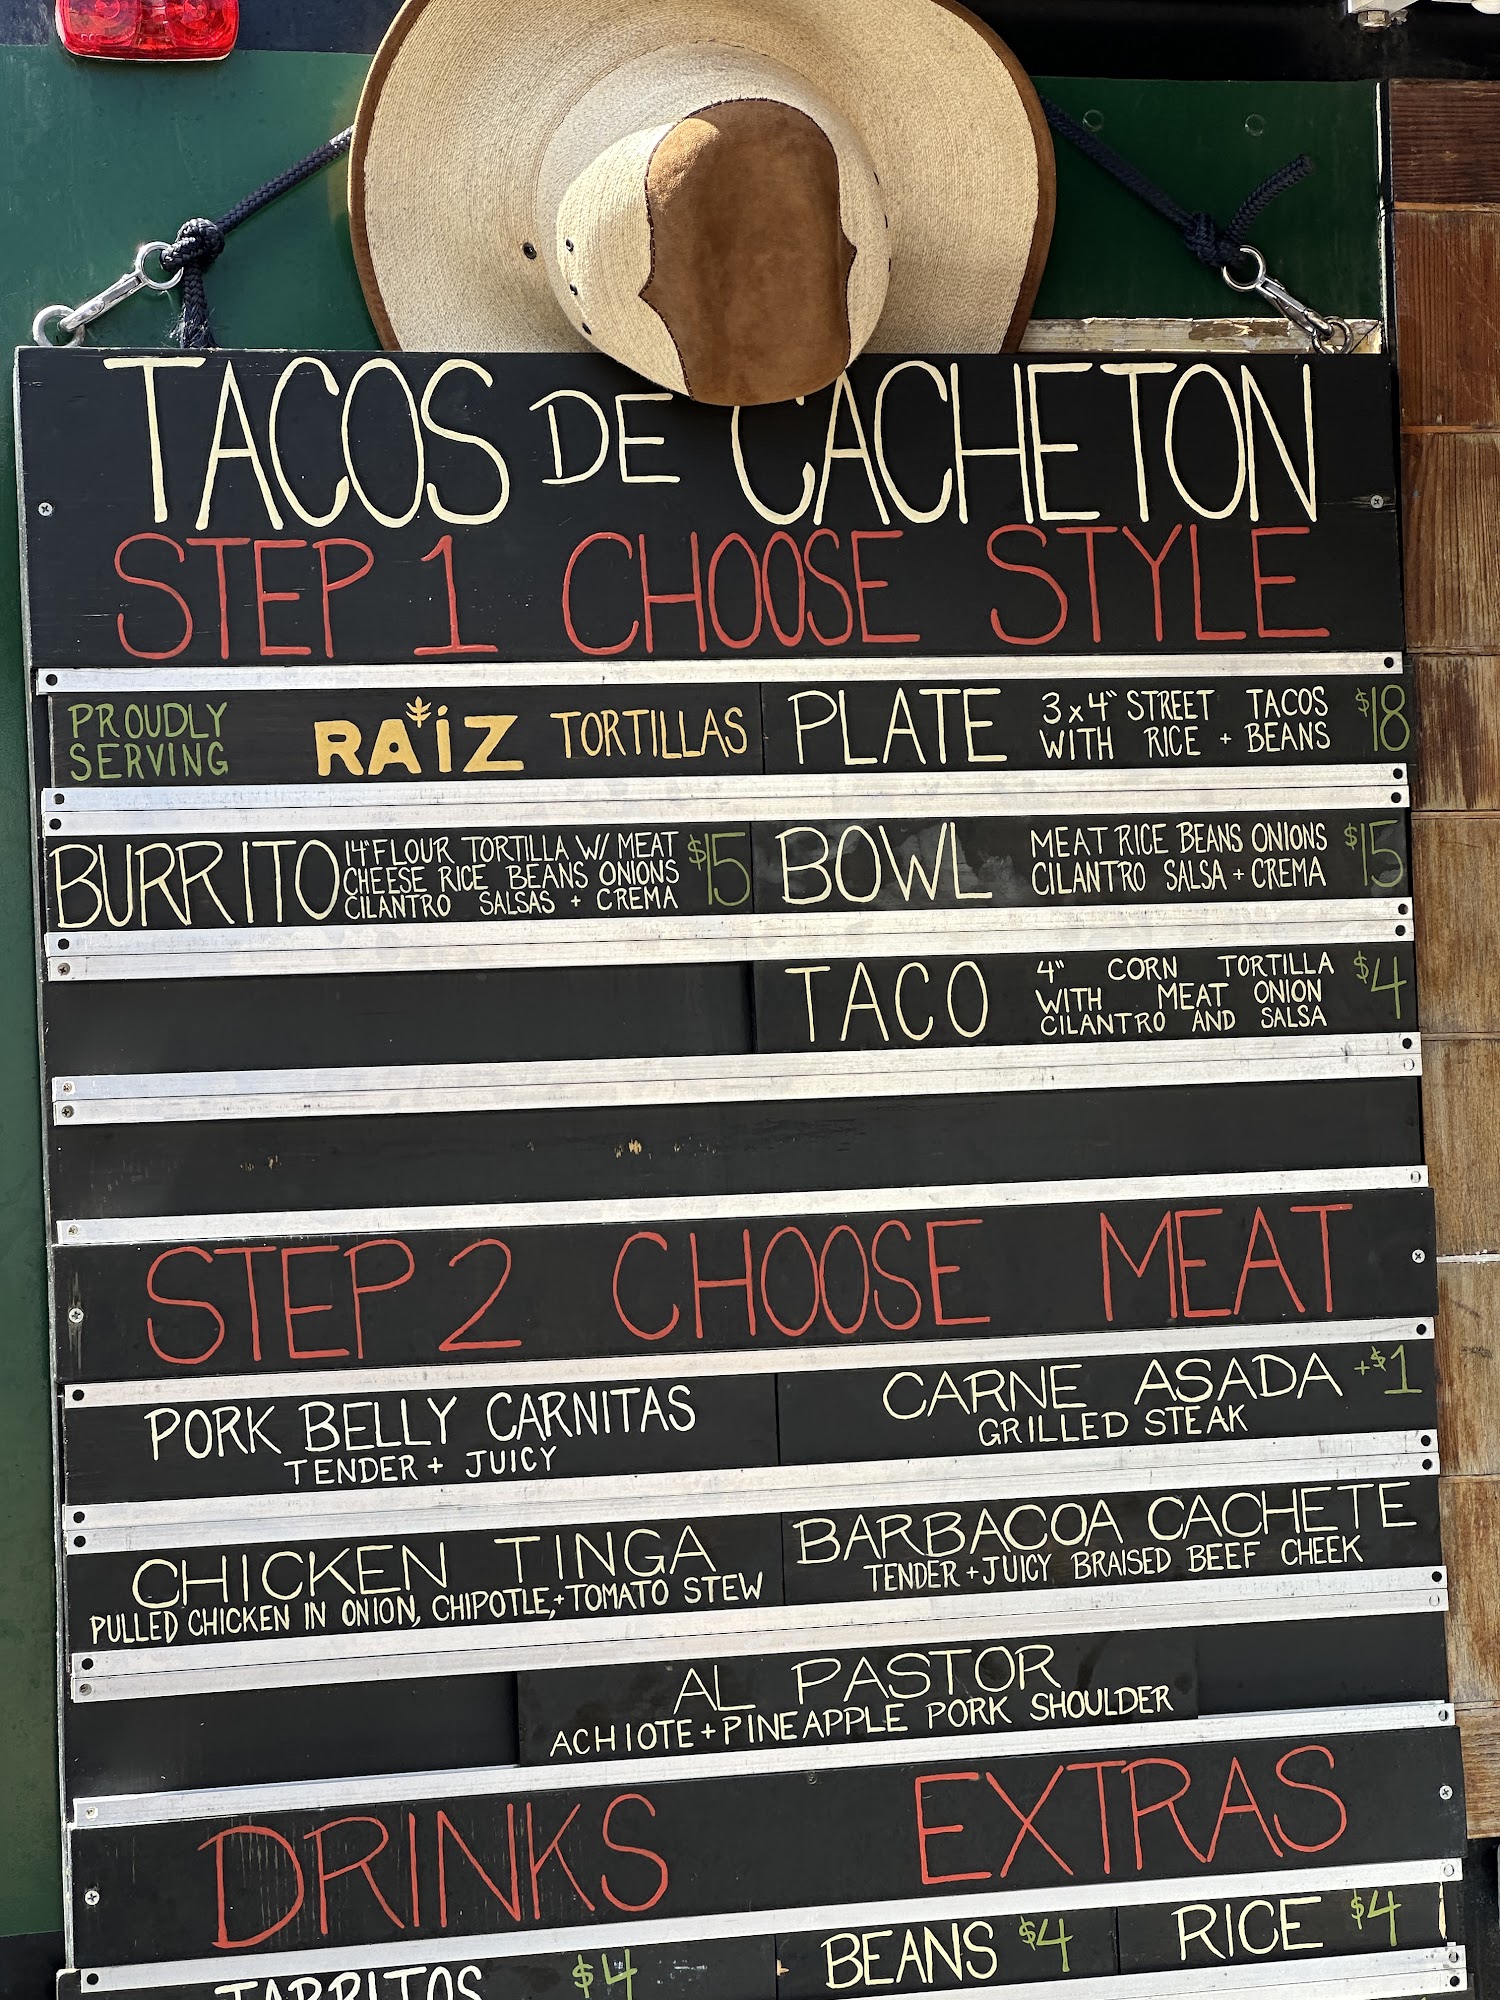 TACOS DE CACHETON
STEP 1 CHOOSE STYLE
PROUDLY
SERVING
RAÍZ TORTILLAS
PLATE
3x4" STREET TACOS
WITH RICE + BEANS
$18
BURRITO
14" FLOUR TORTILLA W/ MEAT
CHEESE RICE BEANS ONIONS
CILANTRO SALSAS + CREMA
$15
BOWL
MEAT RICE BEANS ONIONS
CILANTRO SALSA + CREMA
$15
TACO
4" CORN TORTILLA
WITH MEAT ONION
CILANTRO AND SALSA
$4
STEP 2 CHOOSE MEAT
PORK BELLY CARNITAS
TENDER + JUICY
CARNE ASADA +$1
GRILLED STEAK
CHICKEN TINGA
PULLED CHICKEN IN ONION, CHIPOTLE, + TOMATO STEW
BARBACOA CACHETE
TENDER + JUICY BRAISED BEEF CHEEK
AL PASTOR
ACHIOTE + PINEAPPLE PORK SHOULDER
DRINKS
EXTRAS
JARRITOS $4
BEANS $4
RICE $4